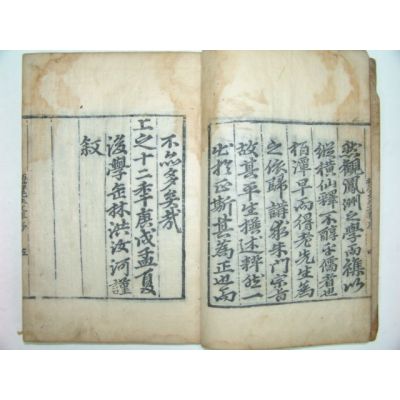 然觀鳳洲之學而雜以
縱橫仙釋不醇乎儒者也
栢潭早而得老先生爲
之依歸講求朱門宗旨
故其平生撰述粹然一
出於正斯其爲正也而
不亦多矣哉
上之十二年庚戌孟夏
後學缶林洪汝河謹
敍